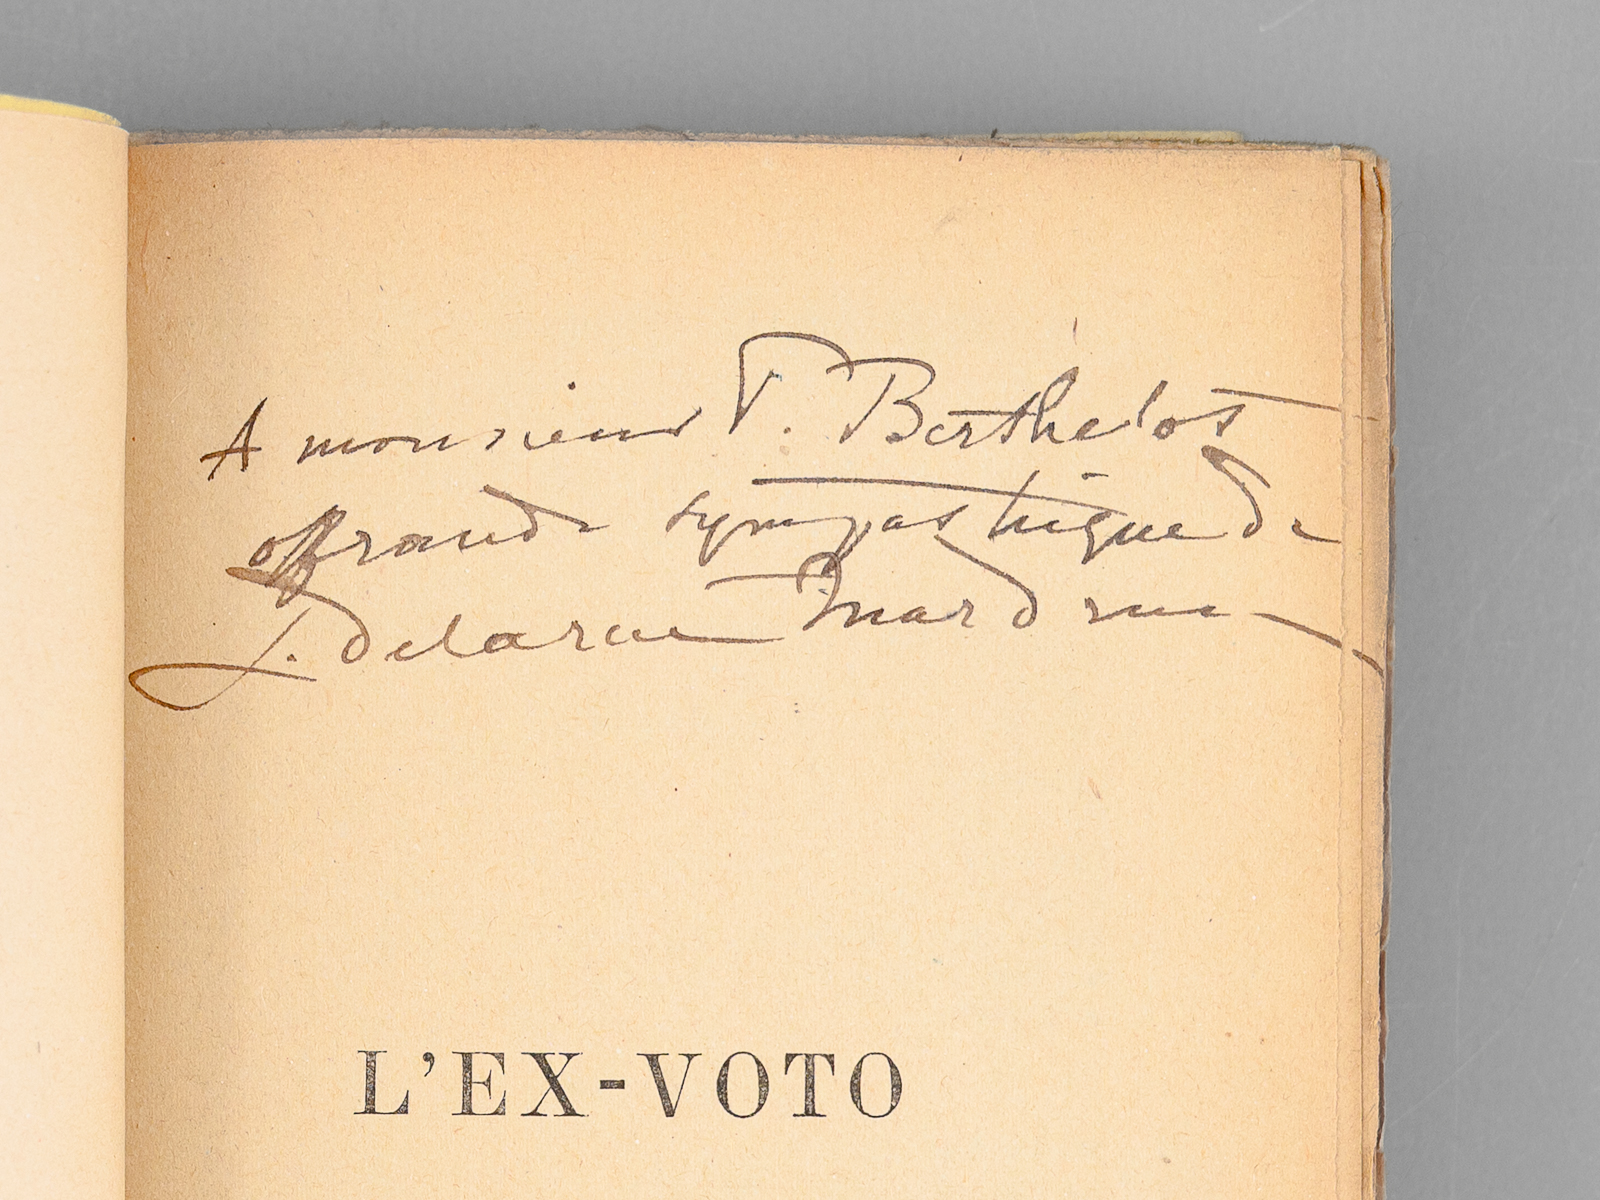 A monsieur P. Berthelot
offrande sympathique de
L. Delarue Mardrus
L'EX-VOTO